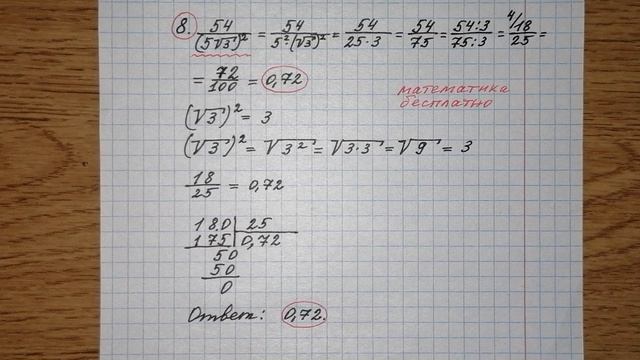 8. 54/(5√3)² = 54/5²·(√3)² = 54/25·3 = 54/75 = 54:3/75:3 = ⁴/18/25 =
= 72/100 = 0,72
математика
бесплатно
(√3)² = 3
(√3)² = √3² = √3·3 = √9 = 3
18/25 = 0,72
180 | 25
175 | 0,72
50
50
0
Ответ: 0,72.